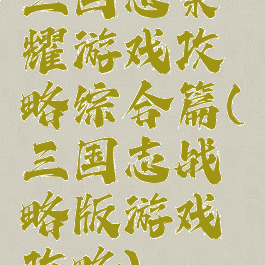 三国志荣
耀游戏攻
略综合篇(
三国志战
略版游戏
攻略)